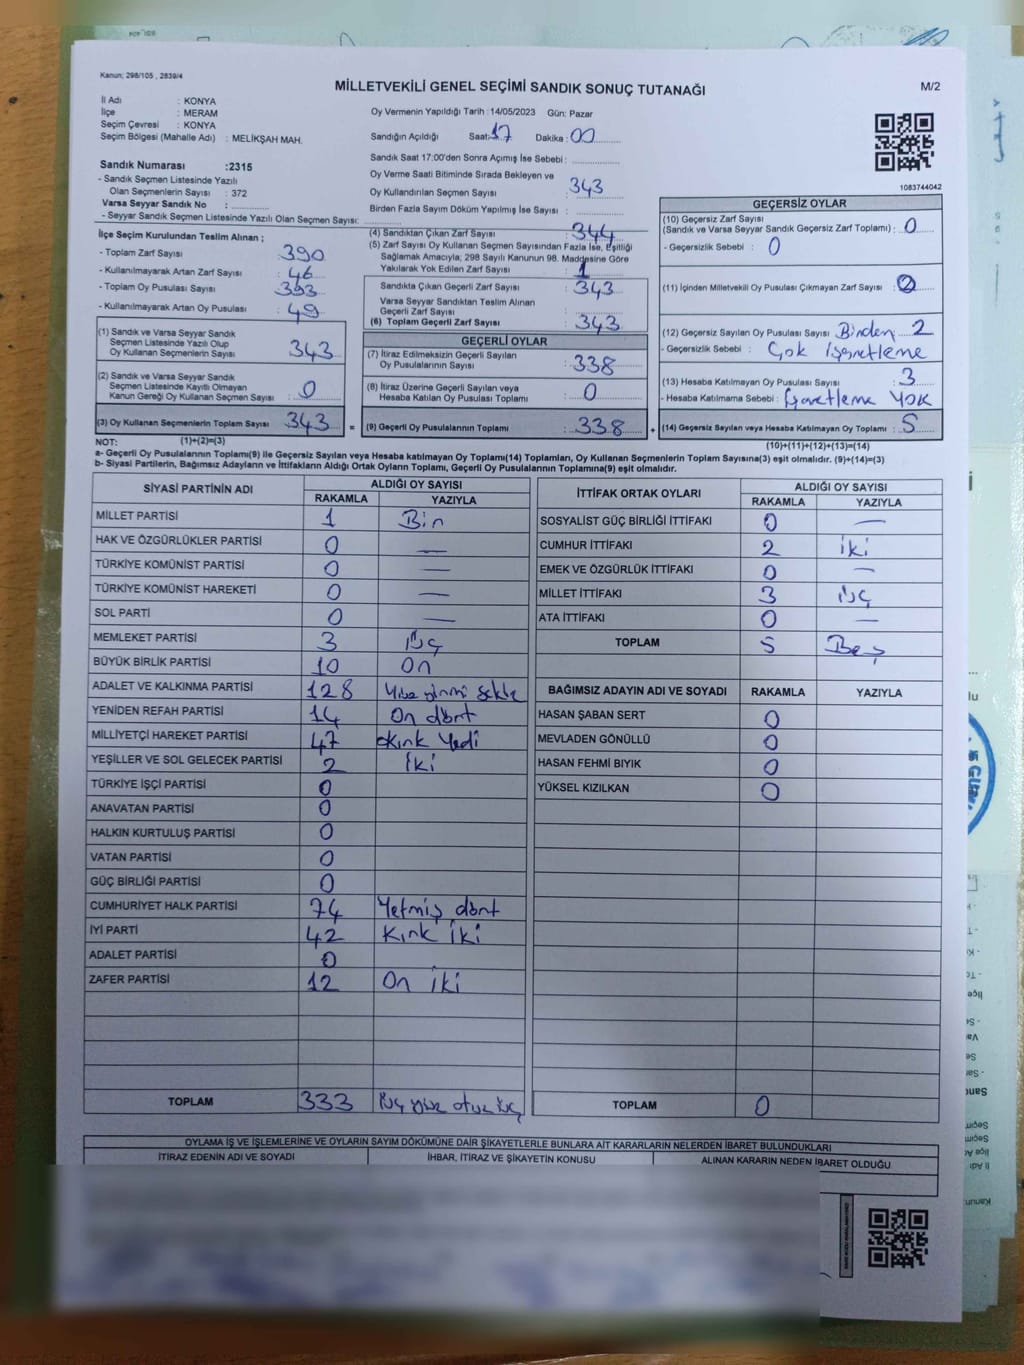 Kanun; 298/105 , 2839/4
MİLLETVEKİLİ GENEL SEÇİMİ SANDIK SONUÇ TUTANAĞI
M/2
İl Adı : KONYA
İlçe : MERAM
Seçim Çevresi : KONYA
Seçim Bölgesi (Mahalle Adı) : MELİKŞAH MAH.
Oy Vermenin Yapıldığı Tarih : 14/05/2023 Gün: Pazar
Sandığın Açıldığı Saat: 17 Dakika : 00
Sandık Saat 17:00'den Sonra Açımış İse Sebebi :
Oy Verme Saati Bitiminde Sırada Bekleyen ve
Oy Kullandırılan Seçmen Sayısı : 343
Birden Fazla Sayım Döküm Yapılmış İse Sayısı :
1083744042
Sandık Numarası :2315
- Sandık Seçmen Listesinde Yazılı
Olan Seçmenlerin Sayısı : 372
Varsa Seyyar Sandık No :
- Seyyar Sandık Seçmen Listesinde Yazılı Olan Seçmen Sayısı:
İlçe Seçim Kurulundan Teslim Alınan ;
- Toplam Zarf Sayısı : 390
- Kullanılmayarak Artan Zarf Sayısı : 46
- Toplam Oy Pusulası Sayısı : 393
- Kullanılmayarak Artan Oy Pusulası : 49
(1) Sandık ve Varsa Seyyar Sandık
Seçmen Listesinde Yazılı Olup
Oy Kullanan Seçmenlerin Sayısı : 343
(2) Sandık ve Varsa Seyyar Sandık
Seçmen Listesinde Kayıtlı Olmayan
Kanun Gereği Oy Kullanan Seçmen Sayısı : 0
(3) Oy Kullanan Seçmenlerin Toplam Sayısı : 343 =
(4) Sandıktan Çıkan Zarf Sayısı : 344
(5) Zarf Sayısı Oy Kullanan Seçmen Sayısından Fazla İse, Eşitliği
Sağlamak Amacıyla; 298 Sayılı Kanunun 98. Maddesine Göre
Yakılarak Yok Edilen Zarf Sayısı : 1
Sandıkta Çıkan Geçerli Zarf Sayısı : 343
Varsa Seyyar Sandıktan Teslim Alınan
Geçerli Zarf Sayısı :
(6) Toplam Geçerli Zarf Sayısı : 343
GEÇERLİ OYLAR
(7) İtiraz Edilmeksizin Geçerli Sayılan
Oy Pusulalarının Sayısı : 338
(8) İtiraz Üzerine Geçerli Sayılan veya
Hesaba Katılan Oy Pusulası Toplamı : 0
(9) Geçerli Oy Pusulalarının Toplamı : 338 +
GEÇERSİZ OYLAR
(10) Geçersiz Zarf Sayısı
(Sandık ve Varsa Seyyar Sandık Geçersiz Zarf Toplamı) : 0
- Geçersizlik Sebebi : 0
(11) İçinden Milletvekili Oy Pusulası Çıkmayan Zarf Sayısı :
(12) Geçersiz Sayılan Oy Pusulası Sayısı Birden 2
- Geçersizlik Sebebi : Çok İşaretleme
(13) Hesaba Katılmayan Oy Pusulası Sayısı : 3
- Hesaba Katılmama Sebebi : İşaretleme YOK
(14) Geçersiz Sayılan veya Hesaba Katılmayan Oy Toplamı : 5
NOT: (1)+(2)=(3)
(10)+(11)+(12)+(13)=(14)
a- Geçerli Oy Pusulalarının Toplamı(9) ile Geçersiz Sayılan veya Hesaba katılmayan Oy Toplamı(14) Toplamları, Oy Kullanan Seçmenlerin Toplam Sayısına(3) eşit olmalıdır. (9)+(14)=(3)
b- Siyasi Partilerin, Bağımsız Adayların ve İttifakların Aldığı Ortak Oyların Toplamı, Geçerli Oy Pusulalarının Toplamına(9) eşit olmalıdır.
SİYASİ PARTİNİN ADI ALDIĞI OY SAYISI
RAKAMLA YAZIYLA
MİLLET PARTİSİ 1 Bir
HAK VE ÖZGÜRLÜKLER PARTİSİ 0 —
TÜRKİYE KOMÜNİST PARTİSİ 0 —
TÜRKİYE KOMÜNİST HAREKETİ 0 —
SOL PARTİ 0 —
MEMLEKET PARTİSİ 3 Üç
BÜYÜK BİRLİK PARTİSİ 10 On
ADALET VE KALKINMA PARTİSİ 128 Yüz yirmi Sekiz
YENİDEN REFAH PARTİSİ 14 On dört
MİLLİYETÇİ HAREKET PARTİSİ 47 Kırk Yedi
YEŞİLLER VE SOL GELECEK PARTİSİ 2 İki
TÜRKİYE İŞÇİ PARTİSİ 0
ANAVATAN PARTİSİ 0
HALKIN KURTULUŞ PARTİSİ 0
VATAN PARTİSİ 0
GÜÇ BİRLİĞİ PARTİSİ 0
CUMHURİYET HALK PARTİSİ 74 Yetmiş dört
İYİ PARTİ 42 Kırk İki
ADALET PARTİSİ 0
ZAFER PARTİSİ 12 On İki
TOPLAM 333 Üç yüz otuz üç
İTTİFAK ORTAK OYLARI ALDIĞI OY SAYISI
RAKAMLA YAZIYLA
SOSYALİST GÜÇ BİRLİĞİ İTTİFAKI 0 —
CUMHUR İTTİFAKI 2 İki
EMEK VE ÖZGÜRLÜK İTTİFAKI 0 —
MİLLET İTTİFAKI 3 Üç
ATA İTTİFAKI 0 —
TOPLAM 5 Beş
BAĞIMSIZ ADAYIN ADI VE SOYADI RAKAMLA YAZIYLA
HASAN ŞABAN SERT 0
MEVLADEN GÖNÜLLÜ 0
HASAN FEHMİ BIYIK 0
YÜKSEL KIZILKAN 0
TOPLAM 0
OYLAMA İŞ VE İŞLEMLERİNE VE OYLARIN SAYIM DÖKÜMÜNE DAİR ŞİKAYETLERLE BUNLARA AİT KARARLARIN NELERDEN İBARET BULUNDUKLARI
İTİRAZ EDENİN ADI VE SOYADI İHBAR, İTİRAZ VE ŞİKAYETİN KONUSU ALINAN KARARIN NEDEN İBARET OLDUĞU